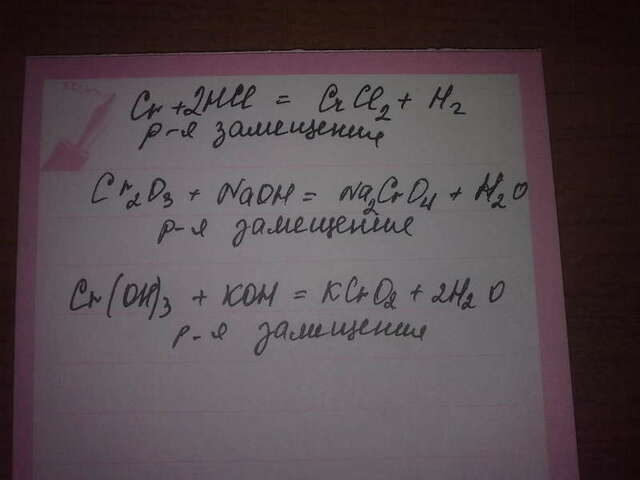 Cr + 2HCl = CrCl2 + H2
р-я замещения
Cr2O3 + NaOH = Na2CrO4 + H2O
р-я замещения
Cr(OH)3 + KOH = KCrO2 + 2H2O
р-я замещения